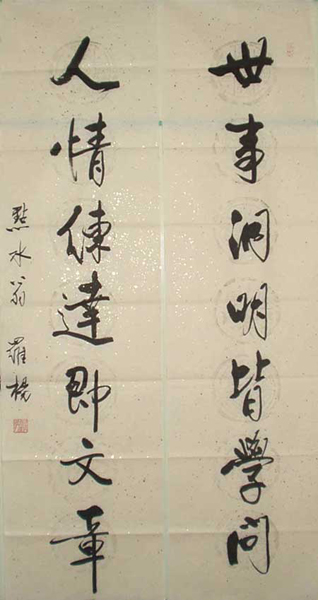 世事洞明皆學問
人情練達即文章
點水翁 羅楊